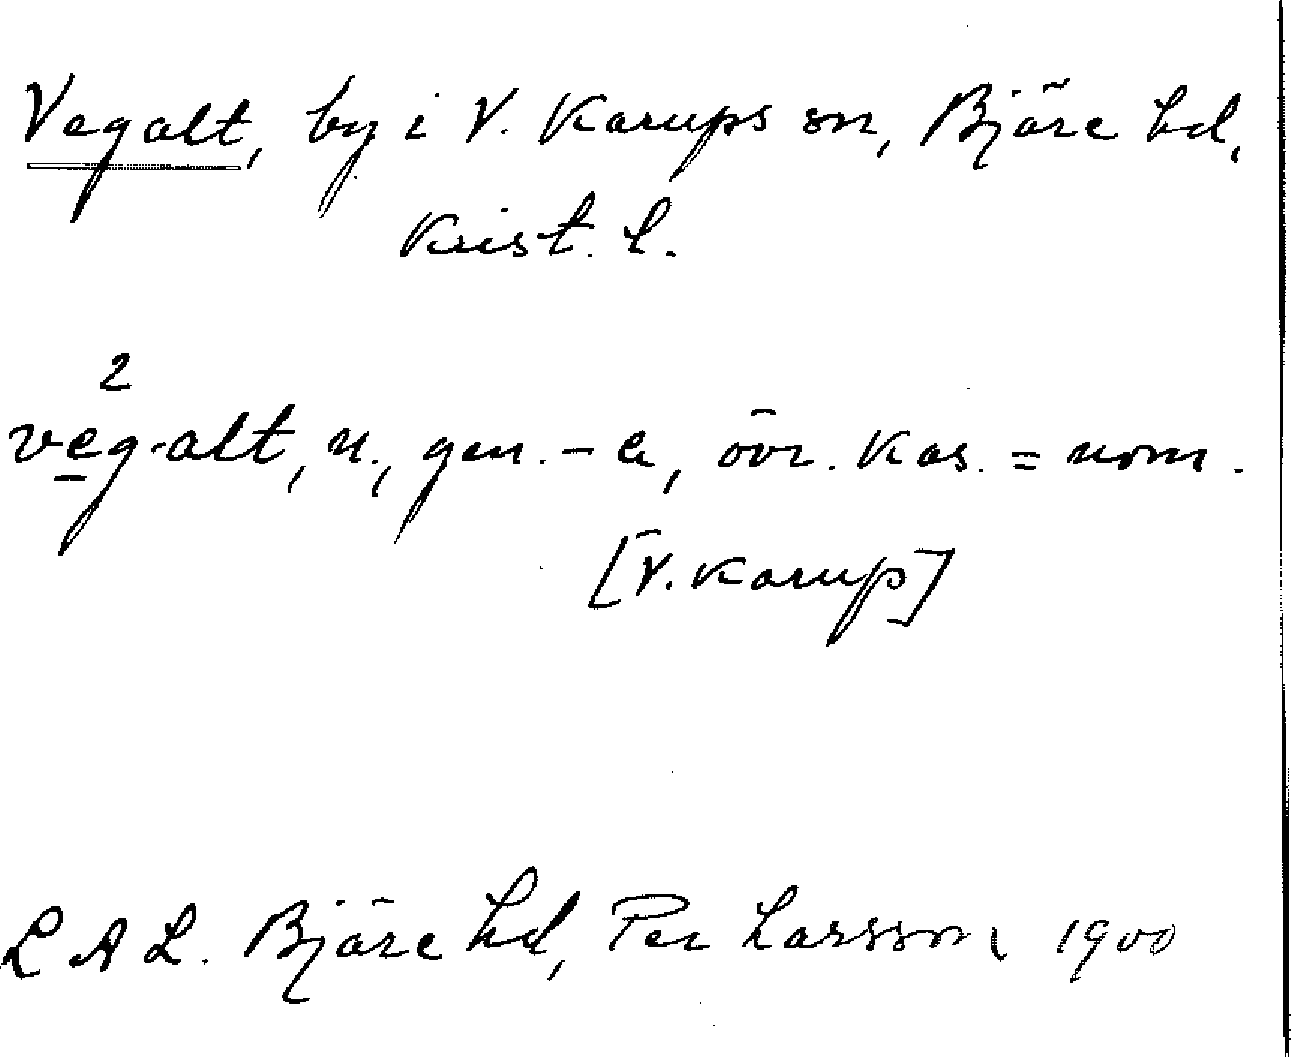 Vegalt, by i V. Karups sn, Bjäre hd,
Krist. l.
2
veg-alt, n., gen. - a, övr. kas. = nom.
[V. Karup]
LAL. Bjäre hd, Per Larsson, 1900